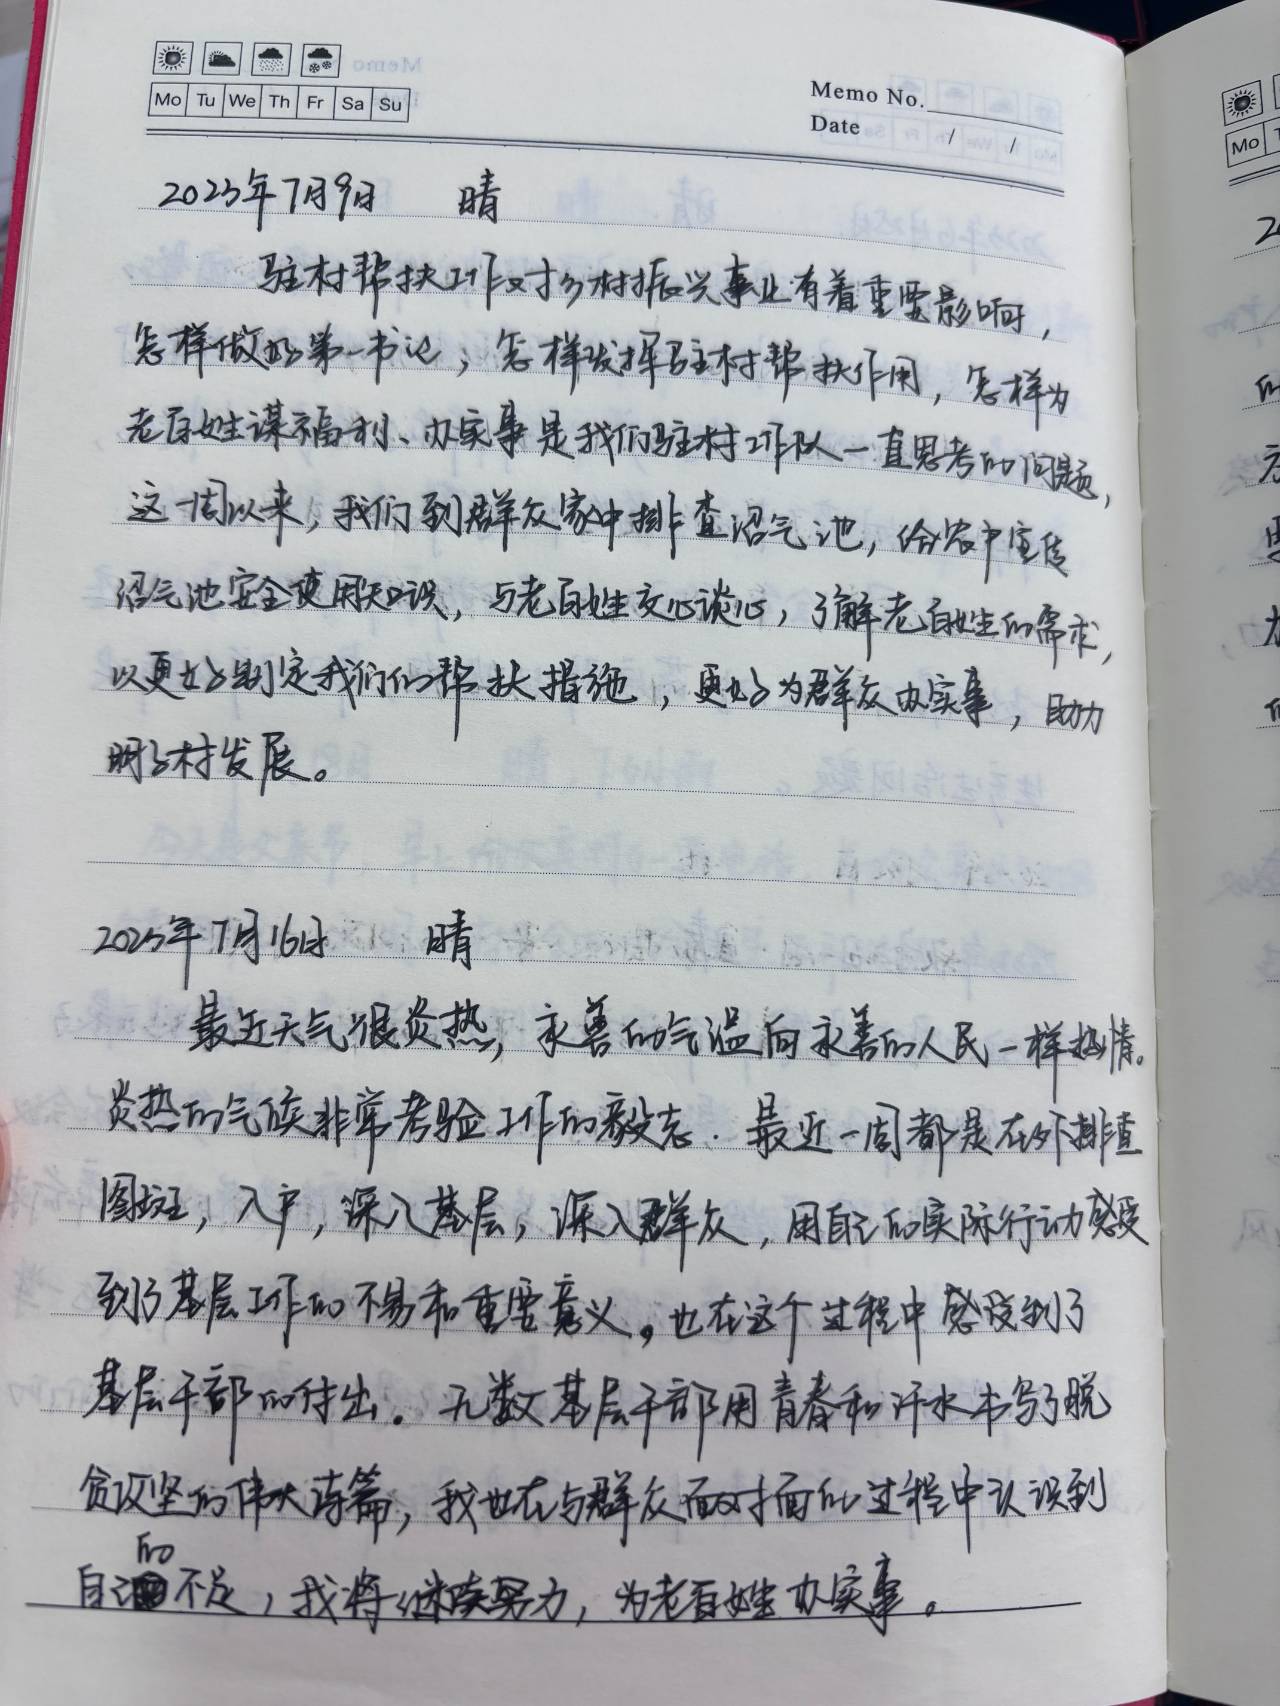 Mo Tu We Th Fr Sa Su
Memo No.
Date / /
2023年7月9日 晴
驻村帮扶工作对乡村振兴事业有着重要影响，
怎样做好第一书记，怎样发挥驻村帮扶作用，怎样为
老百姓谋福利、办实事是我们驻村工作队一直思考的问题，
这一周以来，我们到群众家中排查沼气池，给农户宣传
沼气池安全使用知识，与老百姓交心谈心，了解老百姓的需求，
以更好制定我们的帮扶措施，更好为群众办实事，助力
明子村发展。
2023年7月16日 晴
最近天气很炎热，永善的气温向永善的人民一样热情。
炎热的气候非常考验工作的毅志．最近一周都是在外排查
图斑，入户，深入基层，深入群众，用自己的实际行动感受
到了基层工作的不易和重要意义。也在这个过程中感受到了
基层干部的付出。无数基层干部用青春和汗水书写了脱
贫攻坚的伟大诗篇，我也在与群众面对面的过程中认识到
自己的不足，我将继续努力，为老百姓办实事。
Mo